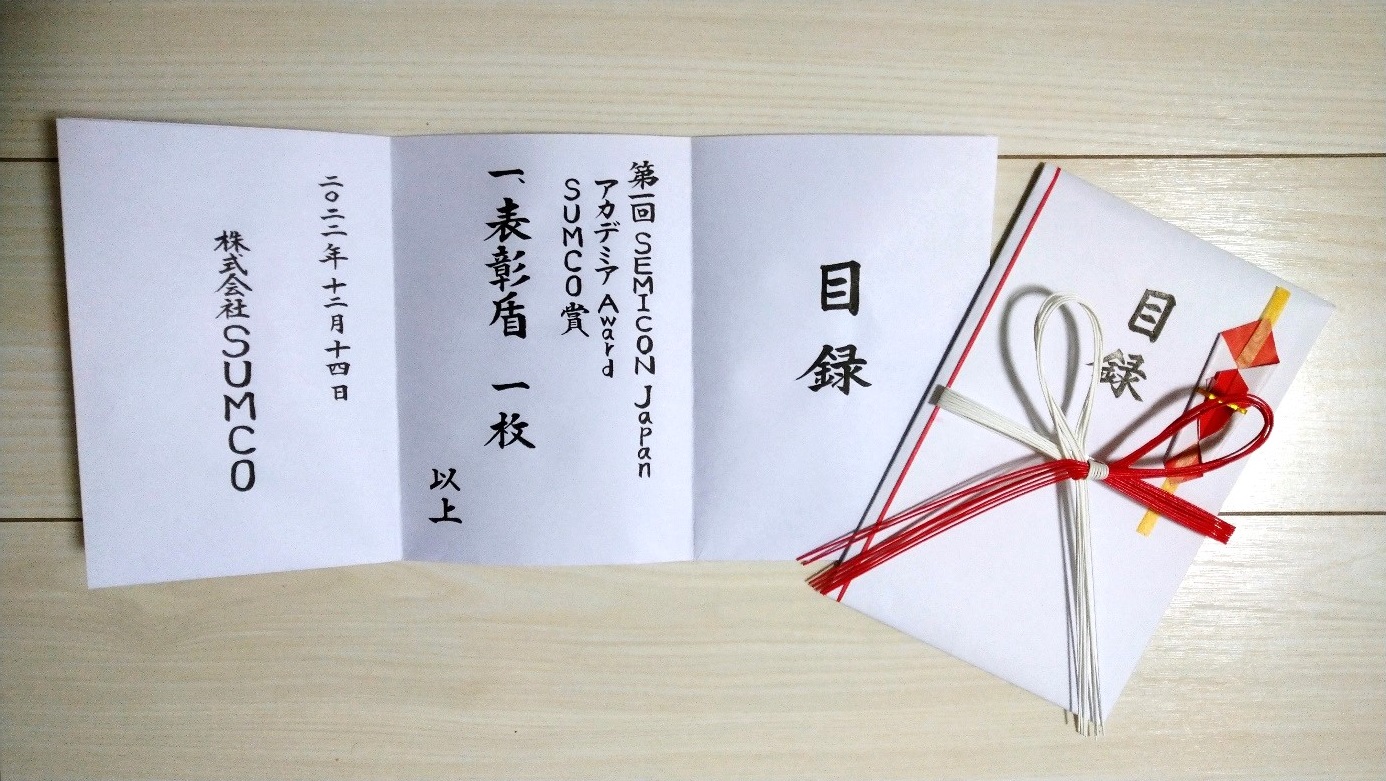 目録
第一回 SEMICON Japan
アカデミア Award
SUMCO賞
一、表彰盾 一枚
以上
二〇二二年十二月十四日
株式会社SUMCO
目録